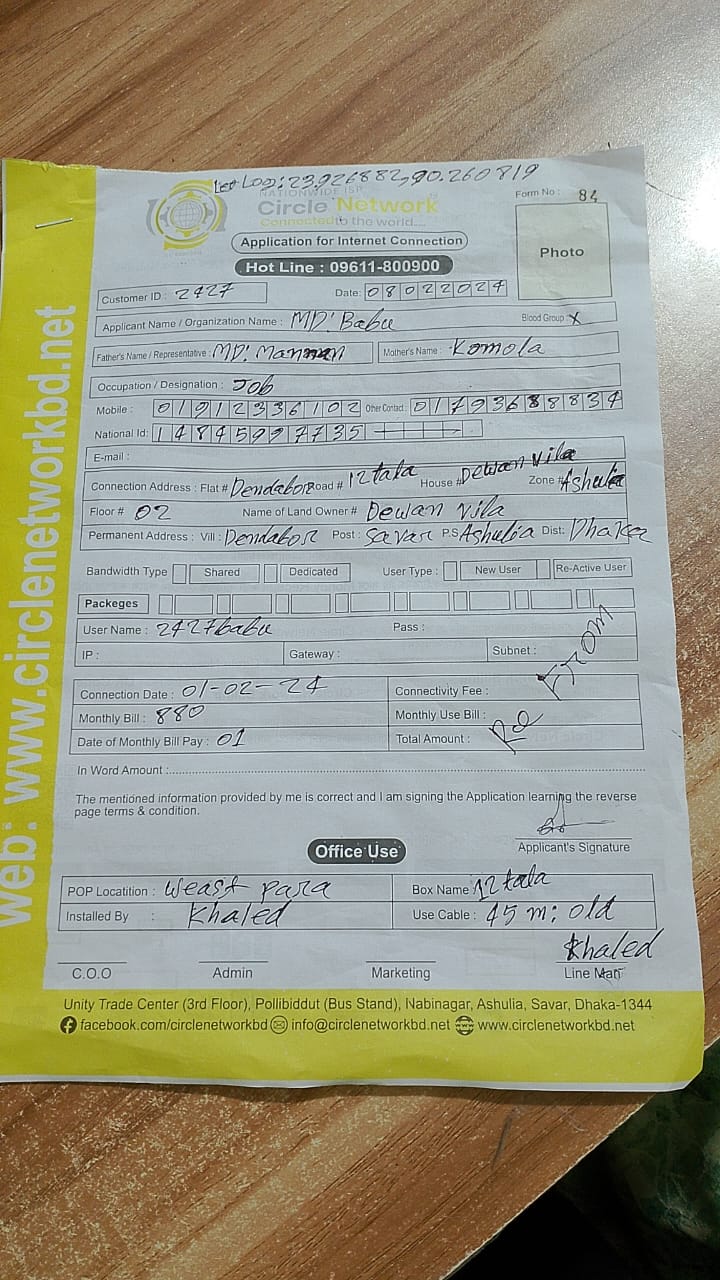 Let Log: 23.926882, 90.260819
NATIONWIDE ISP
Circle Network
Connected to the world....
Form No : 84
Application for Internet Connection
Hot Line : 09611-800900
Photo
Customer ID : 2427 Date: 08022024
Applicant Name / Organization Name : MD: Babu Blood Group : X
Father's Name / Representative : MD: Mannan Mother's Name : Komola
Occupation / Designation : Job
Mobile : 01912336102 Other Contact : 01793688834
National Id: 14845997735
E-mail :
Connection Address : Flat # Dendabor Road # 12 tala House # Dewan Vila Zone # Ashulia
Floor # 02 Name of Land Owner # Dewan Vila
Permanent Address : Vill : Dendabor Post : Savar P.S Ashulia Dist: Dhaka
Bandwidth Type Shared Dedicated User Type : New User Re-Active User
Packeges
User Name : 2427babu Pass :
IP : Gateway : Subnet :
Re From
Connection Date : 01-02-24 Connectivity Fee :
Monthly Bill : 880 Monthly Use Bill :
Date of Monthly Bill Pay : 01 Total Amount :
In Word Amount :
The mentioned information provided by me is correct and I am signing the Application learning the reverse
page terms & condition.
Applicant's Signature
Office Use
POP Locatition : Weast para Box Name : 12 tala
Installed By : Khaled Use Cable : 45 m: old
Khaled
C.O.O Admin Marketing Line Man
Unity Trade Center (3rd Floor), Pollibiddut (Bus Stand), Nabinagar, Ashulia, Savar, Dhaka-1344
facebook.com/circlenetworkbd info@circlenetworkbd.net www.circlenetworkbd.net
web: www.circlenetworkbd.net